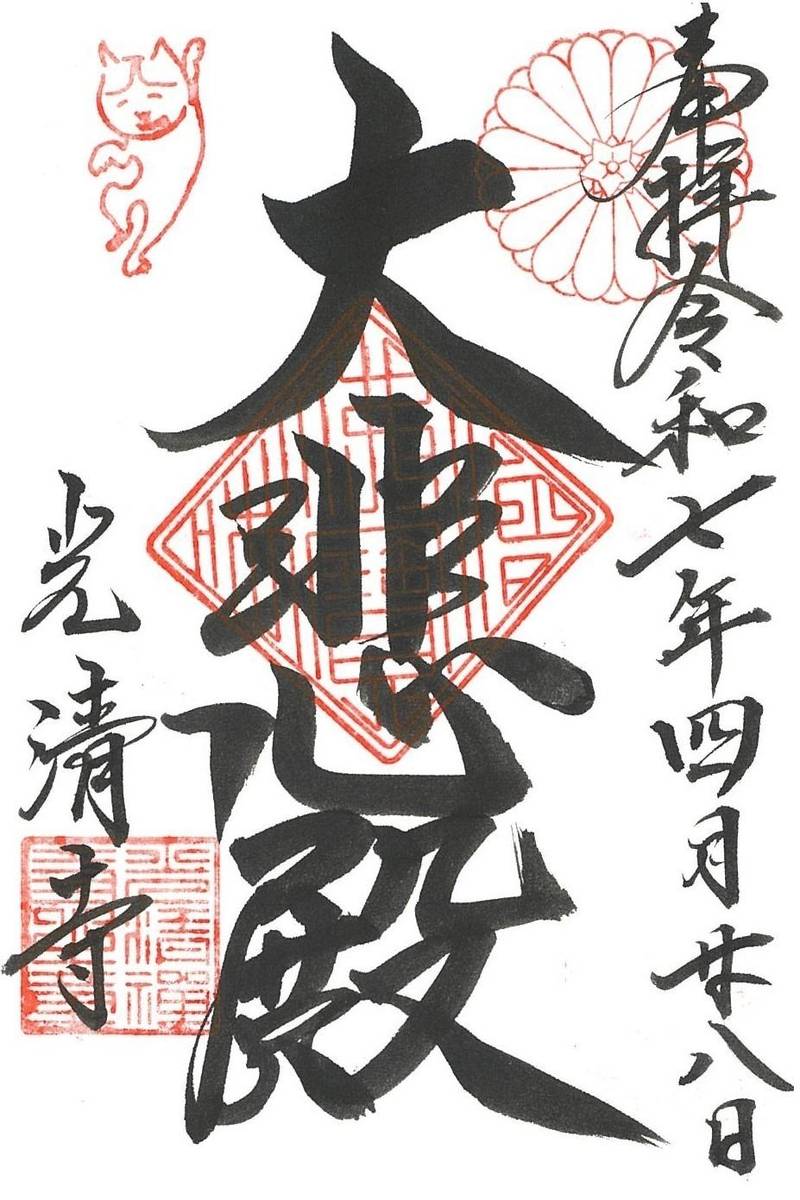 奉拝 令和七年四月廿八日
大悲殿
光清寺